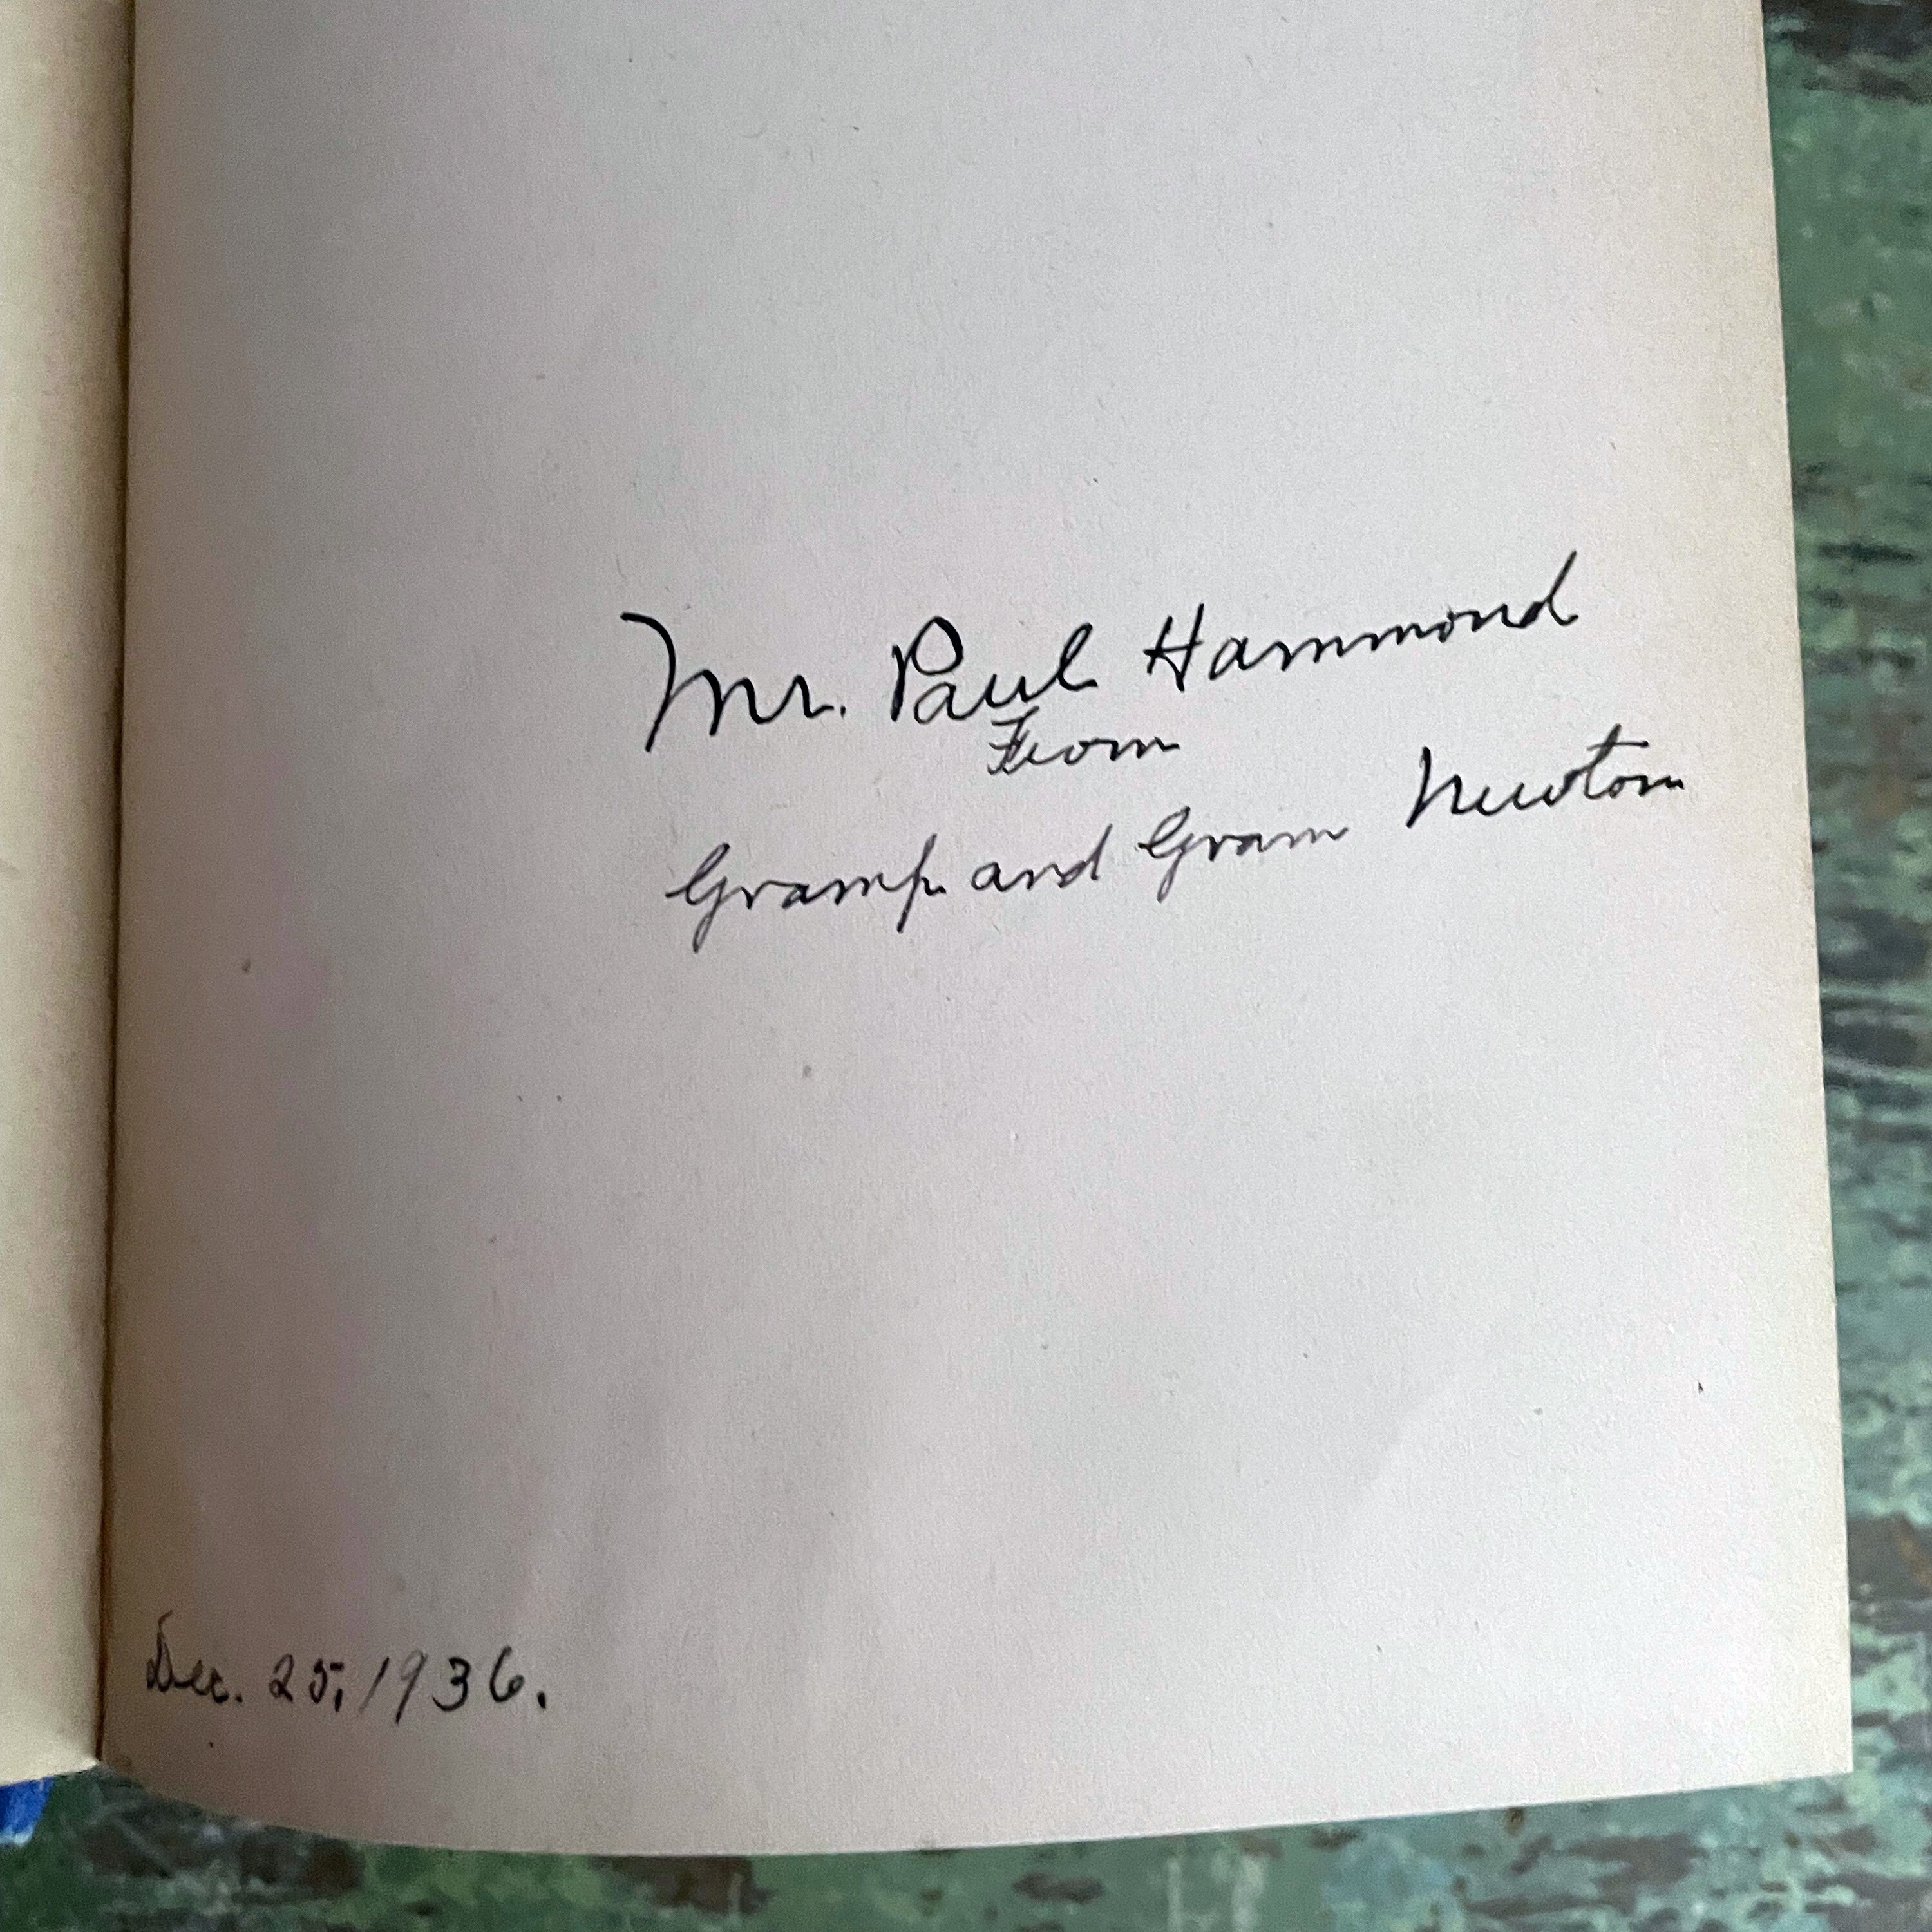 Mr. Paul Hammond
From
Gramp and Gram Newton
Dec. 25, 1936.